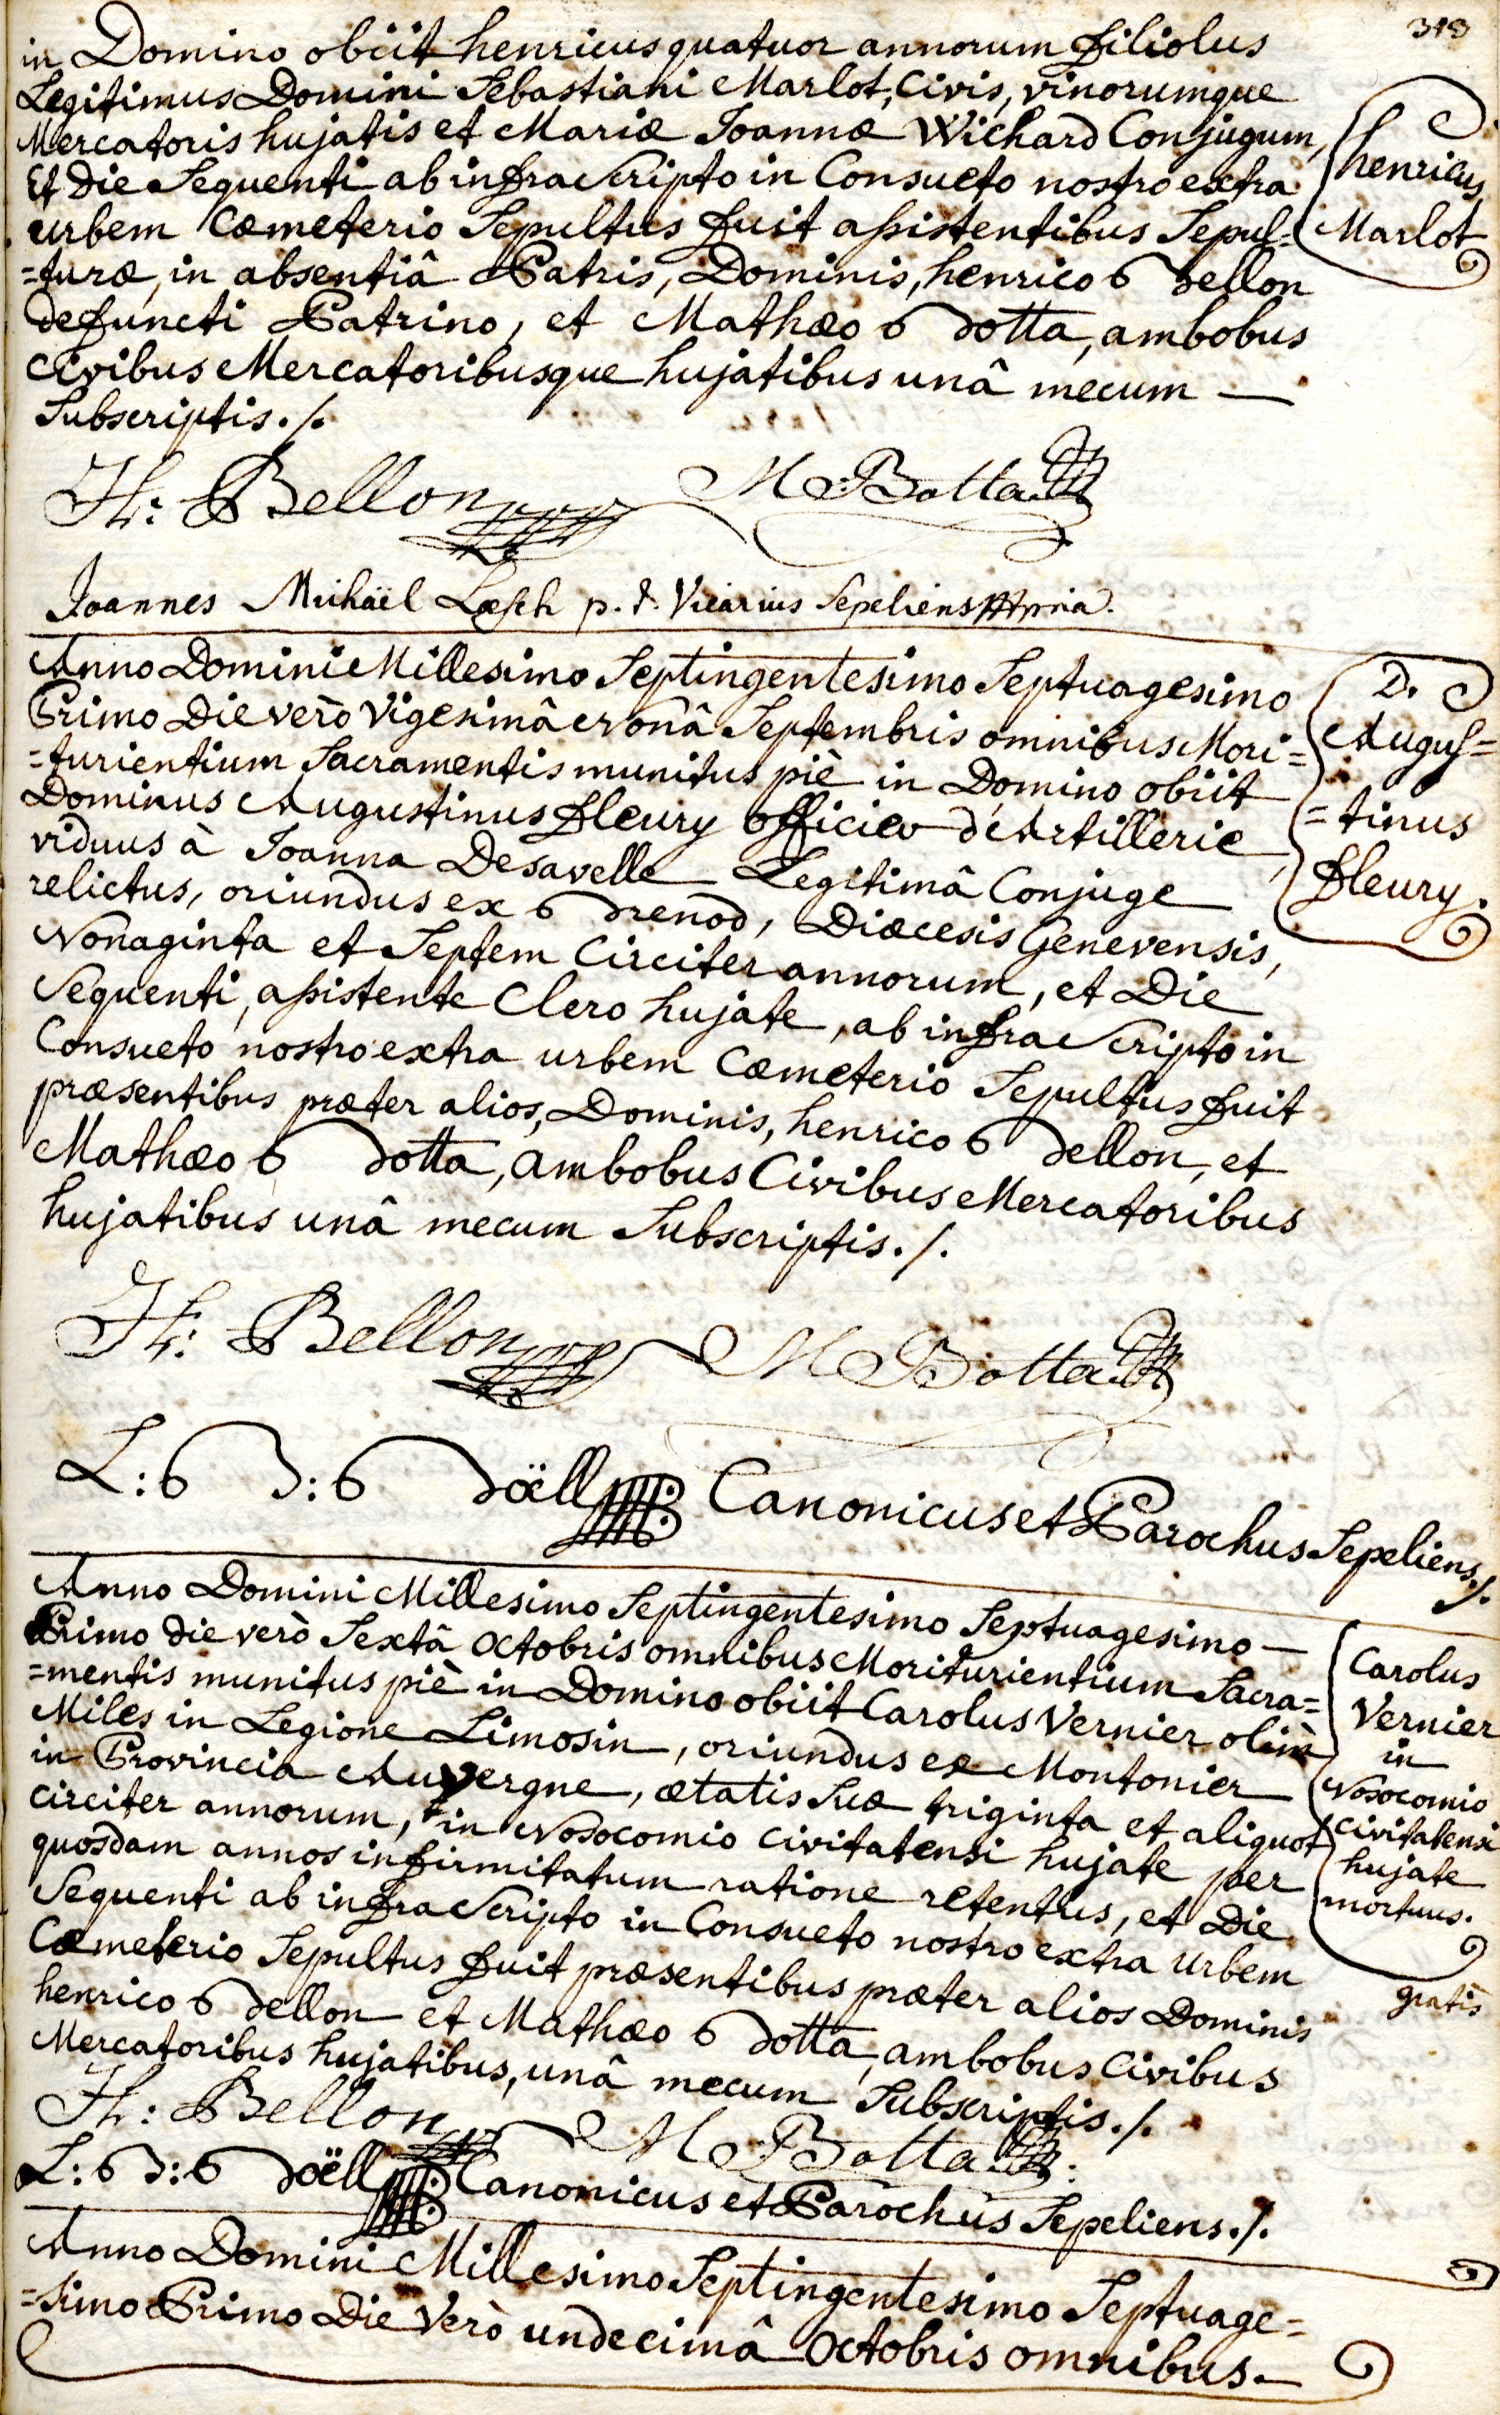 318
in Domino obiit henricus quatuor annorum filiolus
Legitimus Domini Sebastiani Marlot, Civis, vinorumque
Mercatoris hujatis et Mariæ Joannæ Wichard Conjugum,
Et Die Sequenti ab infra Scripto in Consueto nostro extra
urbem Cœmeterio Sepultus fuit assistentibus Sepul=
=turæ, in absentiâ Patris, Dominis, henrico Bellon
defuncti Patrino, et Mathæo Botta, ambobus
Civibus Mercatoribusque hujatibus unâ mecum —
Subscriptis ./.
henricus
Marlot
H: Bellon M Botta
Joannes Michaël Lœsch p. t. Vicarius Sepeliens
Anno Domini Millesimo Septingentesimo Septuagesimo
Primo Die verò Vigesimâ Nonâ Septembris omnibus Mori=
=turientium Sacramentis munitus piè in Domino obiit
Dominus Augustinus Fleury Officier d'Artillerie,
viduus à Joanna Desavelle Legitimâ Conjuge
relictus, oriundus ex Brenod, Diœcesis Genevensis,
Nonaginta et Septem Circiter annorum, et Die
Sequenti, assistente Clero hujate, ab infra Scripto in
Consueto nostro extra urbem Cœmeterio Sepultus fuit
præsentibus præter alios, Dominis, henrico Bellon, et
Mathæo Botta, ambobus Civibus Mercatoribus
hujatibus unâ mecum Subscriptis ./.
D.
Augus=
=tinus
Fleury.
H: Bellon M Botta
L: B: Boëll Canonicus et Parochus Sepeliens ./.
Anno Domini Millesimo Septingentesimo Septuagesimo —
Primo die verò Sextâ Octobris omnibus Moriturientium Sacra=
=mentis munitus piè in Domino obiit Carolus Vernier olim
Miles in Legione Limosin, oriundus ex Montonier
in Provincia Auvergne, ætatis Suæ triginta et aliquot
circiter annorum, in Nosocomio civitatensi hujate per
quosdam annos infirmitatum ratione retentus, et Die
Sequenti ab infra Scripto in Consueto nostro extra Urbem
Cœmeterio Sepultus fuit præsentibus præter alios Dominis
henrico Bellon et Mathæo Botta, ambobus Civibus
Mercatoribus hujatibus, unâ mecum Subscriptis ./.
Carolus
Vernier
in
Nosocomio
civitatensi
hujate
mortuus.
gratis
H: Bellon M Botta
L: B: Boëll Canonicus et Parochus Sepeliens ./.
Anno Domini Millesimo Septingentesimo Septuage=
=simo Primo Die Verò undecimâ Octobris omnibus —